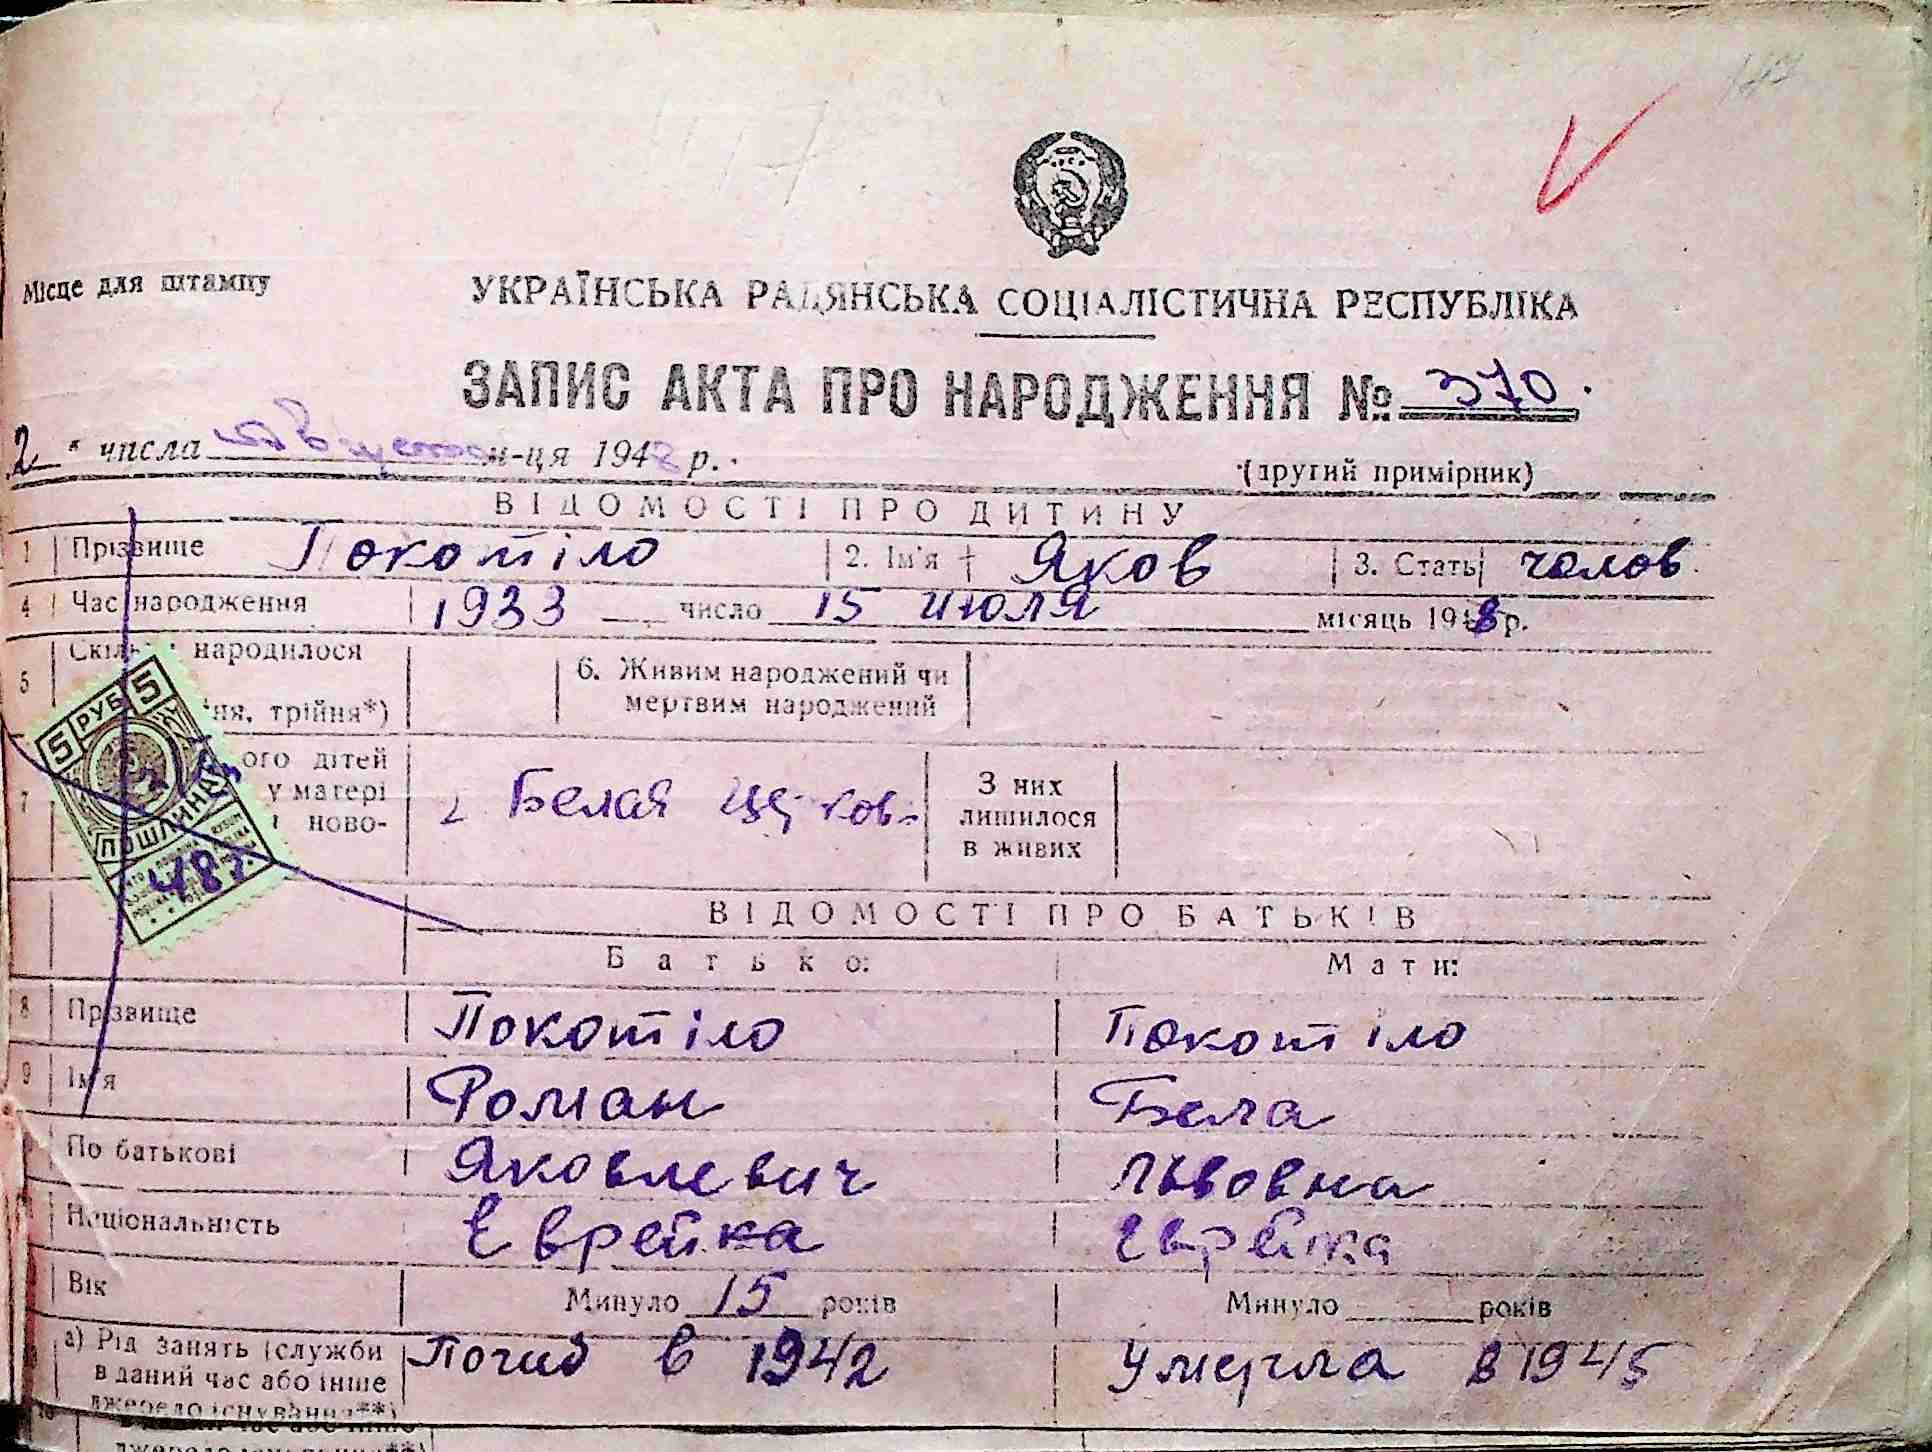 Місце для штампу
УКРАЇНСЬКА РАДЯНСЬКА СОЦІАЛІСТИЧНА РЕСПУБЛІКА
ЗАПИС АКТА ПРО НАРОДЖЕННЯ № 370.
2 " числа августа м-ця 1948 р.
(другий примірник)
ВІДОМОСТІ ПРО ДИТИНУ
1 Прізвище Покотіло 2. Ім'я Яков 3. Стать чолов.
4 Час народження 1933 число 15 июля місяць 1948 р.
5 народилося
6. Живим народжений чи мертвим народжений
трійня*)
7 ого дітей у матері ново-
г Белая Церков. З них лишилося в живих
5 РУБ 5
ПОШЛИНА
48 г.
ВІДОМОСТІ ПРО БАТЬКІВ
Батько: Мати:
8 Прізвище Покотіло Покотіло
9 Ім'я Роман Бела
По батькові Яковлевич Львовна
Національність Еврейка Еврейка
Вік Минуло 15 років Минуло років
а) Рід занять (служби в даний час або інше джерело існування**) Погиб в 1942 Умерла в 1945
джерело